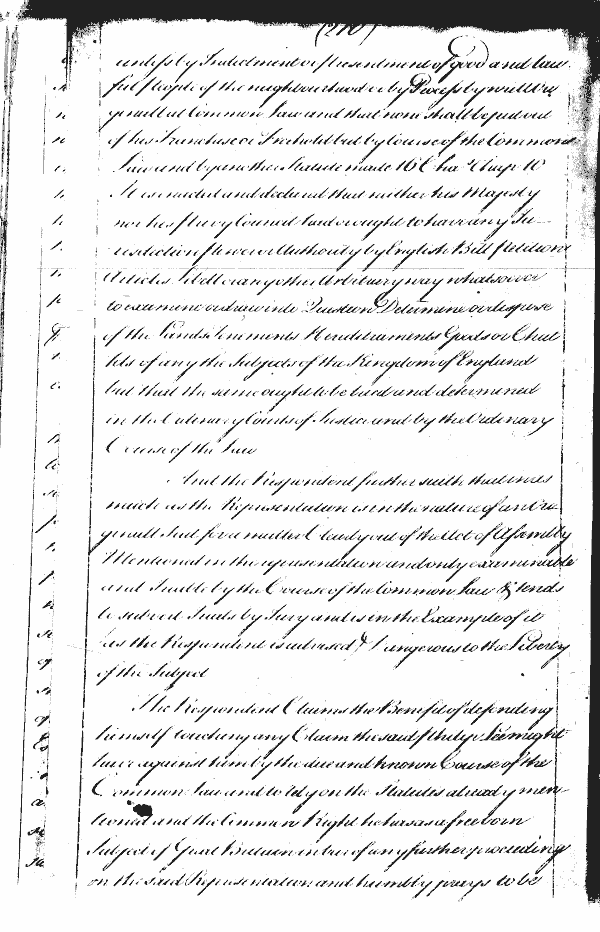 (210)
unless by Indictment or presentment of good and law
full People of the neighbourhood or by Process by writt Ori
ginall at Common Law and that none shall be put out
of his Franchise or Freehold but by Course of the Common
Law and by another Statute made 16 Cha Chap 10
It is enacted and declared that neither his Majesty
nor his Privy Council had or ought to have any Ju
risdiction Power or Authority by English Bill Petition
Articles Libell or any other Arbitrary way whatsoever
to examine or draw into Question Determine or dispose
of the Lands Tenements Hereditaments Goods or Chat
tels of any the Subjects of the Kingdom of England
but that the same ought to be tried and determined
in the Ordinary Courts of Justice and by the Ordinary
Course of the Law
And the Respondent further saith that in as
much as the Representation is in the nature of an Ori
ginall Suit for a matter Clearly out of the Act of Assembly
Mentioned in the representation and only examinable
and Tryable by the Course of the Common Law & tends
to subvert Trials by Jury and is in the Example of it
(as the Respondent is advised) Dangerous to the Liberty
of the Subject
The Respondent Claims the Benefit of defending
himself touching any Claim the said Philip Lee might
have against him by the due and known Course of the
Common Law and to rely on the Statutes already men
tioned and the Common Right he has as a free born
Subject of Great Brittain in bar of any further proceeding
on the said Representation and humbly prays to be